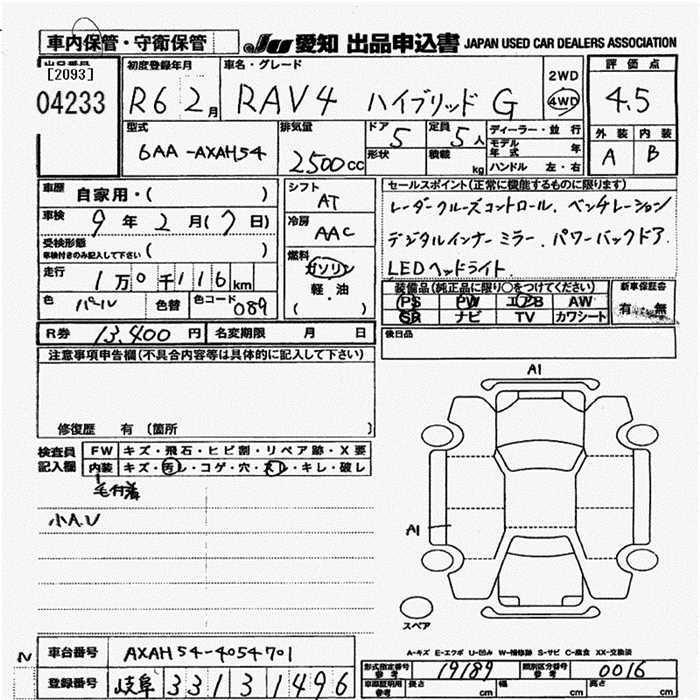 車内保管・守衛保管 JU 愛知 出品申込書 JAPAN USED CAR DEALERS ASSOCIATION
出品番号 初度登録年月 車名・グレード 評価点
[2093] 2WD
04233 R6 2月 RAV4 ハイブリッド G 4WD 4.5
型式 排気量 ドア 5 定員 5人 ディーラー・並行 外装 内装
6AA-AXAH54 2500cc 形状 積載 kg モデル年式 年 A B
ハンドル 左・右
車歴 自家用・( ) シフト AT セールスポイント(正常に機能するものに限ります)
車検 9年2月(7日) 冷房 AAC レーダークルーズコントロール、ベンチレーション
受検形態 車検付きのみ記入して下さい ( ) デジタルインナーミラー、パワーバックドア、
走行 1万0千116km 燃料 ガソリン LEDヘッドライト
軽・油
( )
色 パール 色替 色コード 089 装備品(純正品に限り○をつけてください) 新車保証書
PS PW エアB AW 有 無
SR ナビ TV カワシート
R券 13,400円 名変期限 月 日 後日品
注意事項申告欄(不具合内容等は具体的に記入して下さい)
修復歴 有 (箇所 )
検査員記入欄 FW キズ・飛石・ヒビ割・リペア跡・X要
内装 キズ・汚レ・コゲ・穴・スレ・キレ・破レ
毛付着
小A.U
A1
A1
スペア
A-キズ E-エクボ U-凹み W-補修跡 S-サビ C-腐食 XX-交換済
車台番号 AXAH54-4054701 型式指定番号 参考 19189 類別区分番号 参考 0016
登録番号 岐阜 331 31496 車庫証明用 参考 長さ cm 幅 cm 高さ cm